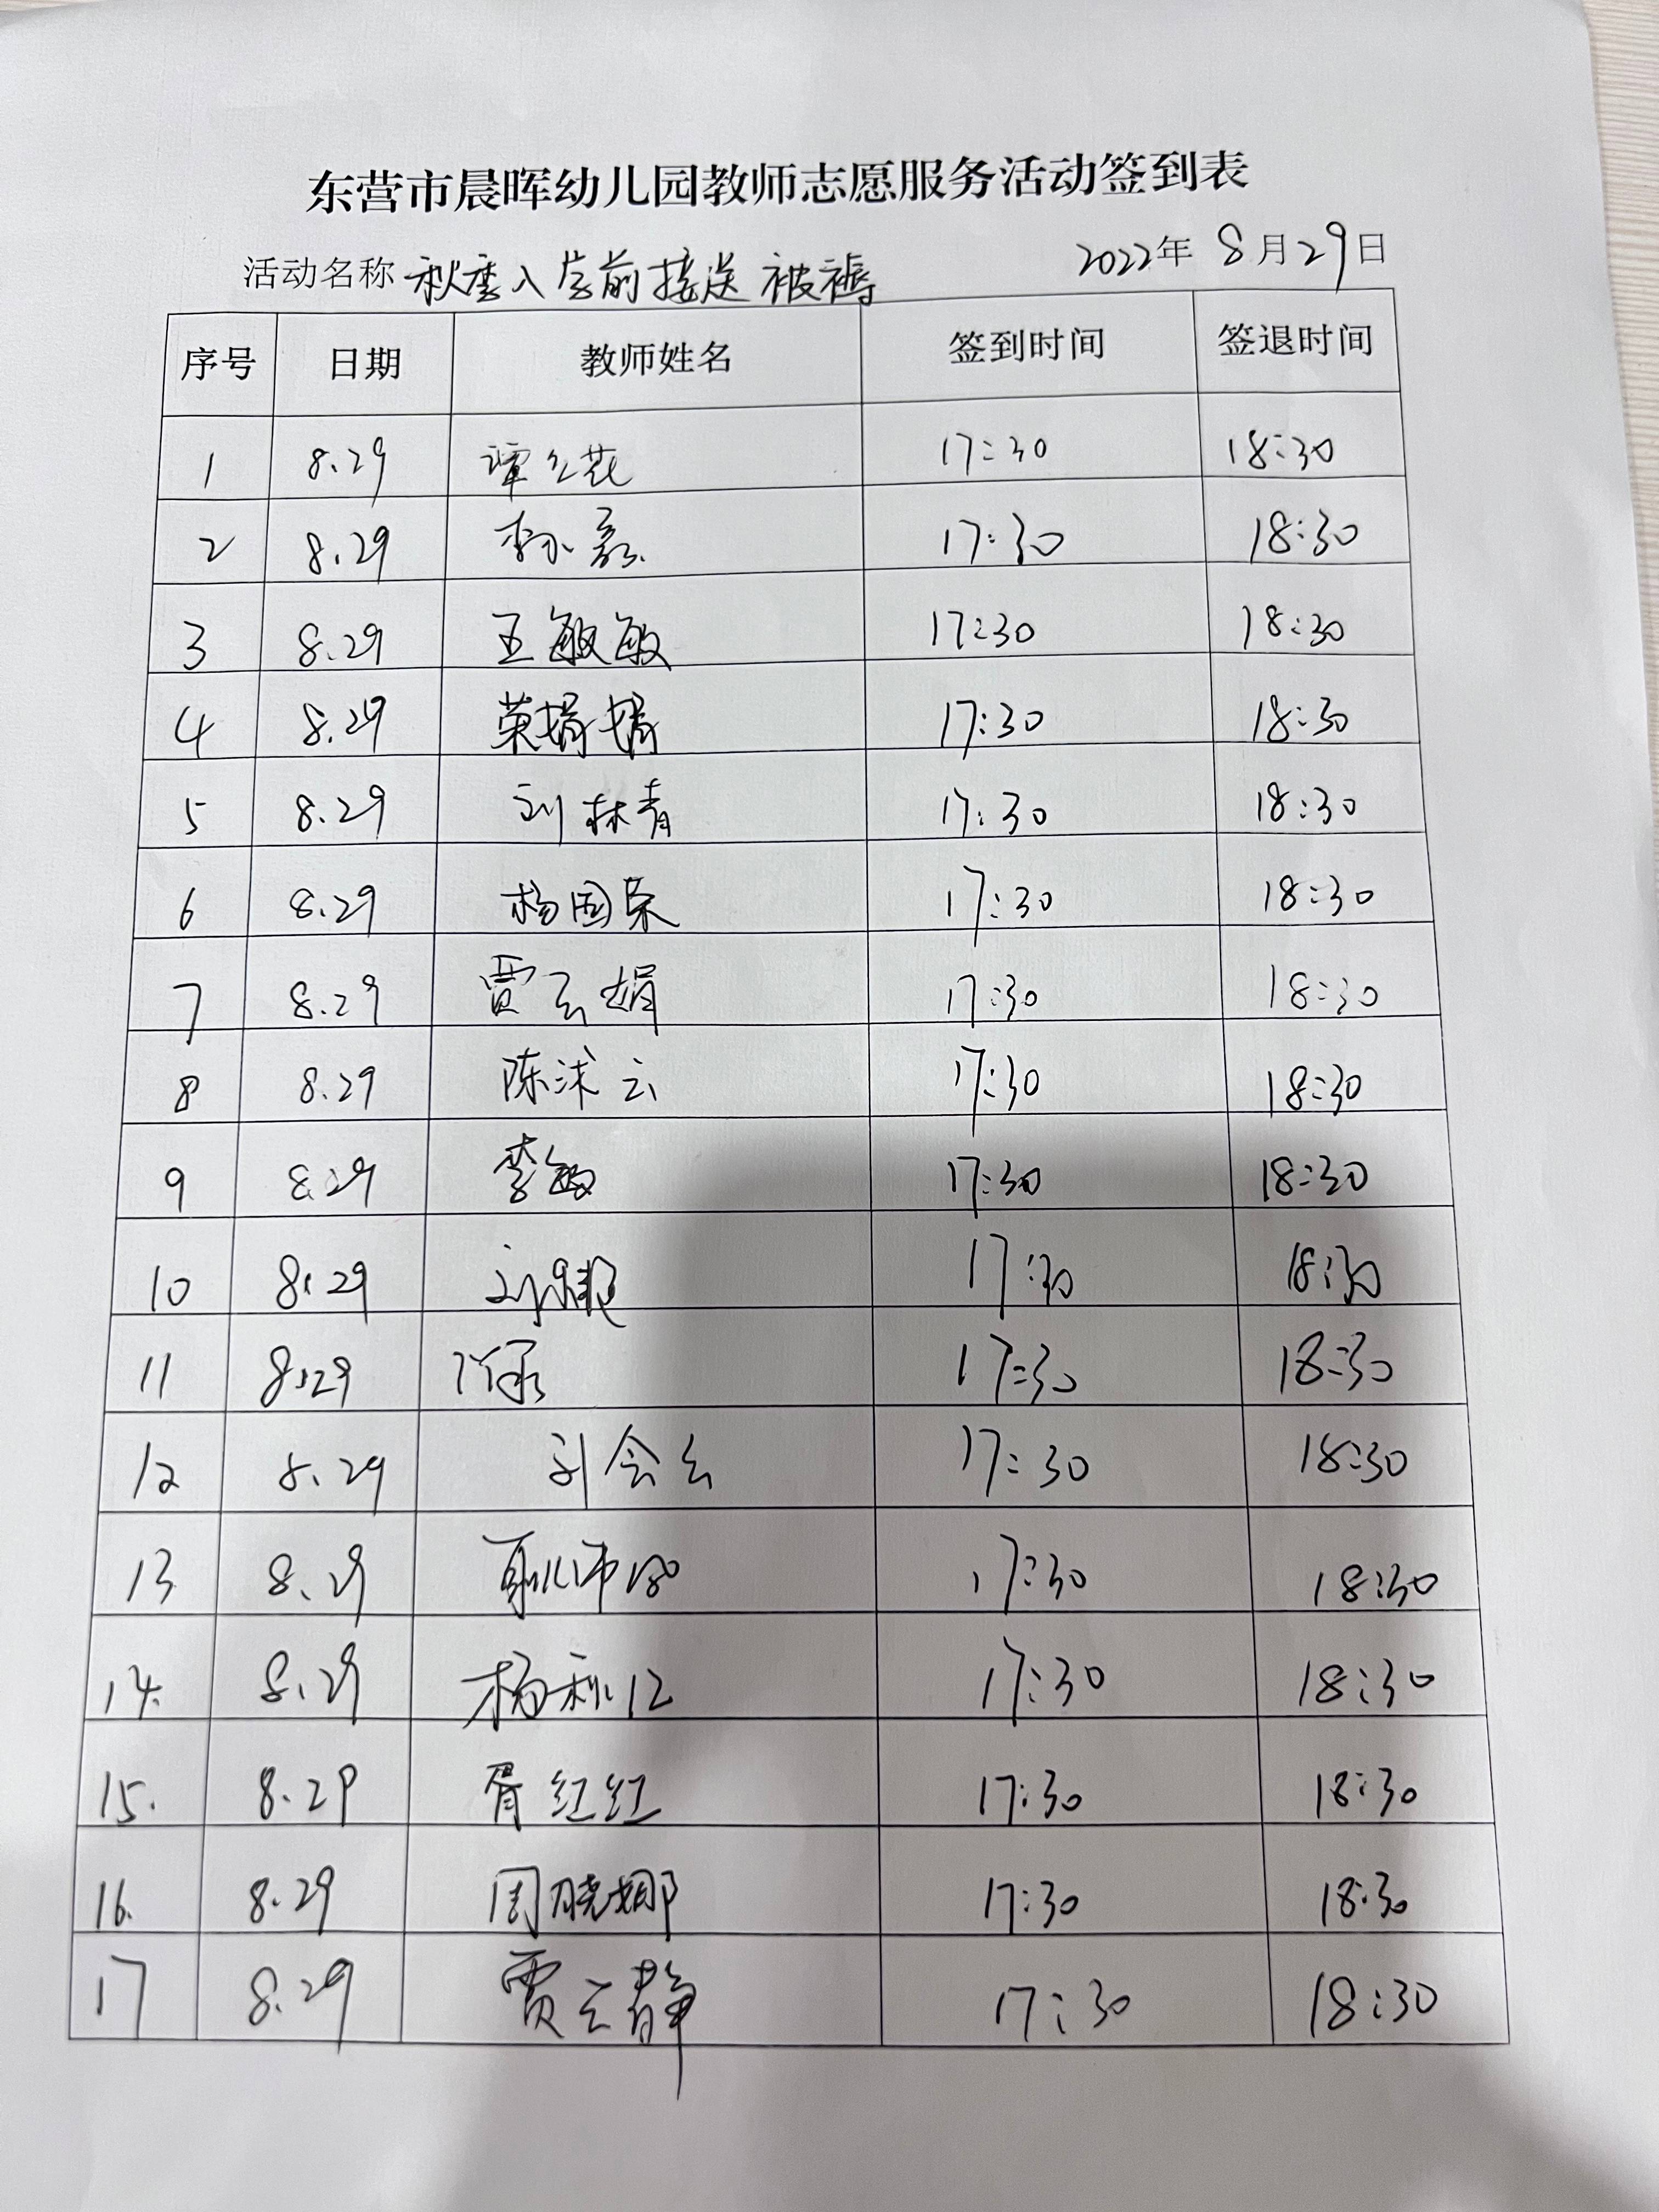 东营市晨晖幼儿园教师志愿服务活动签到表
活动名称 秋季入学前接送被褥 2022年 8月29日
序号 日期 教师姓名 签到时间 签退时间
1 8.29 17:30 18:30
2 8.29 17:30 18:30
3 8.29 王敏敏 17:30 18:30
4 8.29 荣娟娟 17:30 18:30
5 8.29 刘林青 17:30 18:30
6 8.29 杨国荣 17:30 18:30
7 8.29 贾云娟 17:30 18:30
8 8.29 陈沫云 17:30 18:30
9 8.29 李敏 17:30 18:30
10 8.29 17:30 18:30
11 8.29 17:30 18:30
12 8.29 刘会云 17:30 18:30
13 8.29 17:30 18:30
14. 8.29 杨利红 17:30 18:30
15. 8.29 胥红红 17:30 18:30
16. 8.29 周晓娜 17:30 18:30
17 8.29 贾云静 17:30 18:30